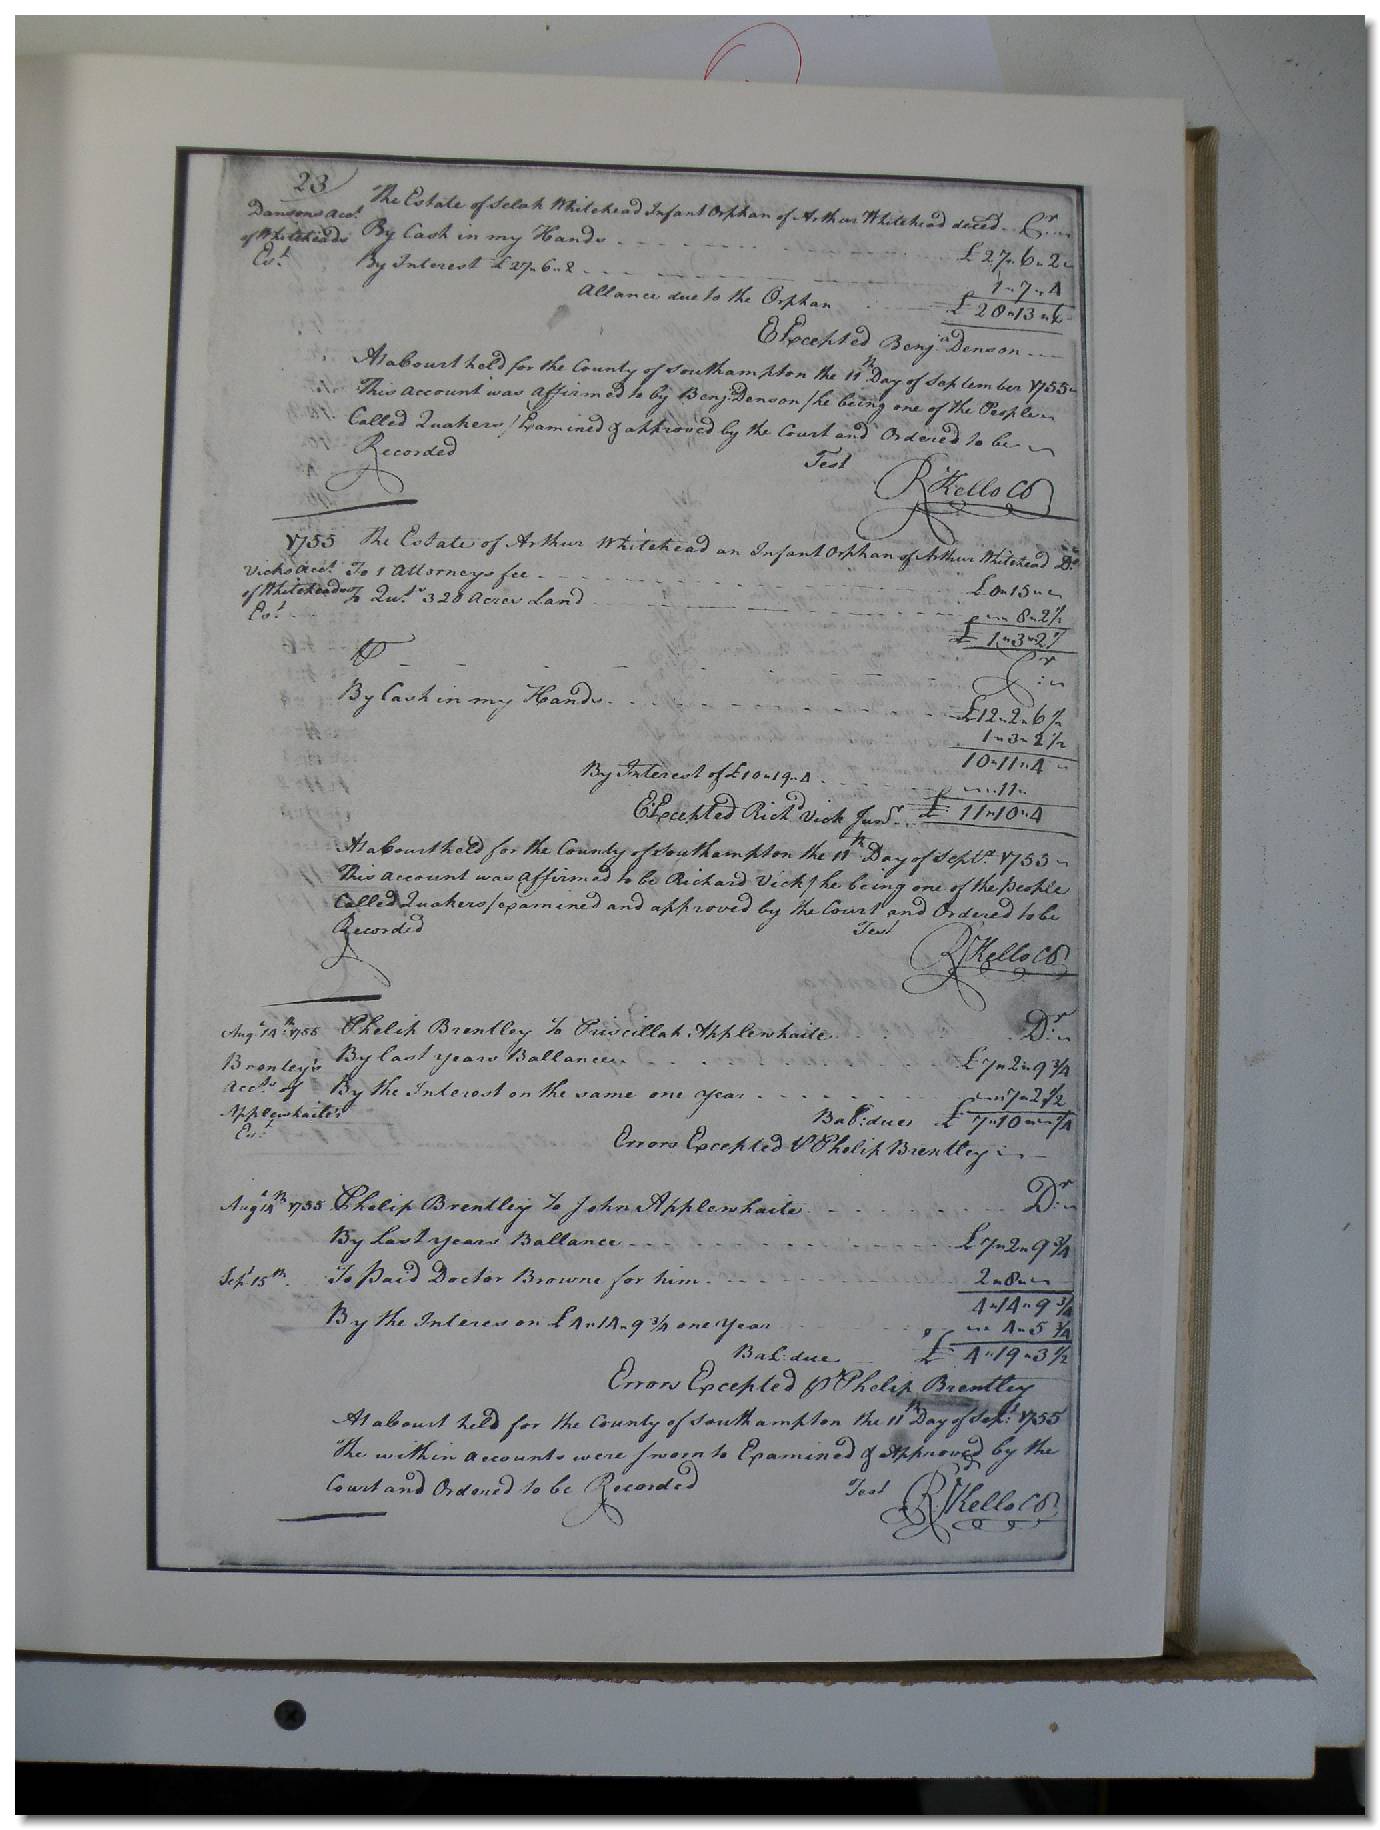 23
Densons acct. The Estate of Selah Whitehead Infant Orphan of Arthur Whitehead deced.. Cr.
of Whiteheads By Cash in my Hands £27"6"2
Est. By Interest £27"6"2 1"7"4
Allance due to the Orphan £28"13"6
E Excepted Benja. Denson
At a Court held for the County of Southampton the 11th Day of September 1755
This account was affirmed to by Benj. Denson / he being one of the People
Called Quakers / Examined & approved by the Court and Ordered to be
Recorded Test
R Kello CC
1755 The Estate of Arthur Whitehead an Infant Orphan of Arthur Whitehead Dr.
Vicks acct. To 1 Attorneys fee £0"15"
of Whiteheads To Qut.rs 328 Acres Land 8"2½
Est. £1"3"2½
Cr.
By Cash in my Hands £12"2"6½
1"3"2½
10"11"4
By Interest of £10"19"4 11"
E: Excepted Richd. Vick Junr. £11"10"4
At a Court held for the County of Southampton the 11th Day of Septr. 1755
This account was affirmed to be Richard Vick / he being one of the people
Called Quakers / examined and approved by the Court and Ordered to be
Recorded Test
R Kello CC
Augt. 14th 1755 Phelip Brentley To Priscillah Applewhaite Dr.
Brentley's By last years Ballance £7"2"9¾
acct. of By the Interest on the same one year 7"2½
Applewhaites Bal: due £7"10"¼
Est. Errors Excepted P Phelip Brentley
Augt. 14th 1755 Phelip Brentley To John Applewhaite Dr.
By Last years Ballance £7"2"9¾
Sept. 15th. To Paid Doctor Browne for him 2"8"
4"14"9¾
By the Interes on £4"14"9¾ one Year 4"5¾
Bal: due £4"19"3½
Errors Excepted Pr Phelip Brentley
At a Court held for the County of Southampton the 11th Day of Sept. 1755
The within accounts were sworn to Examined & Approved by the
Court and Ordered to be Recorded Test R Kello CC